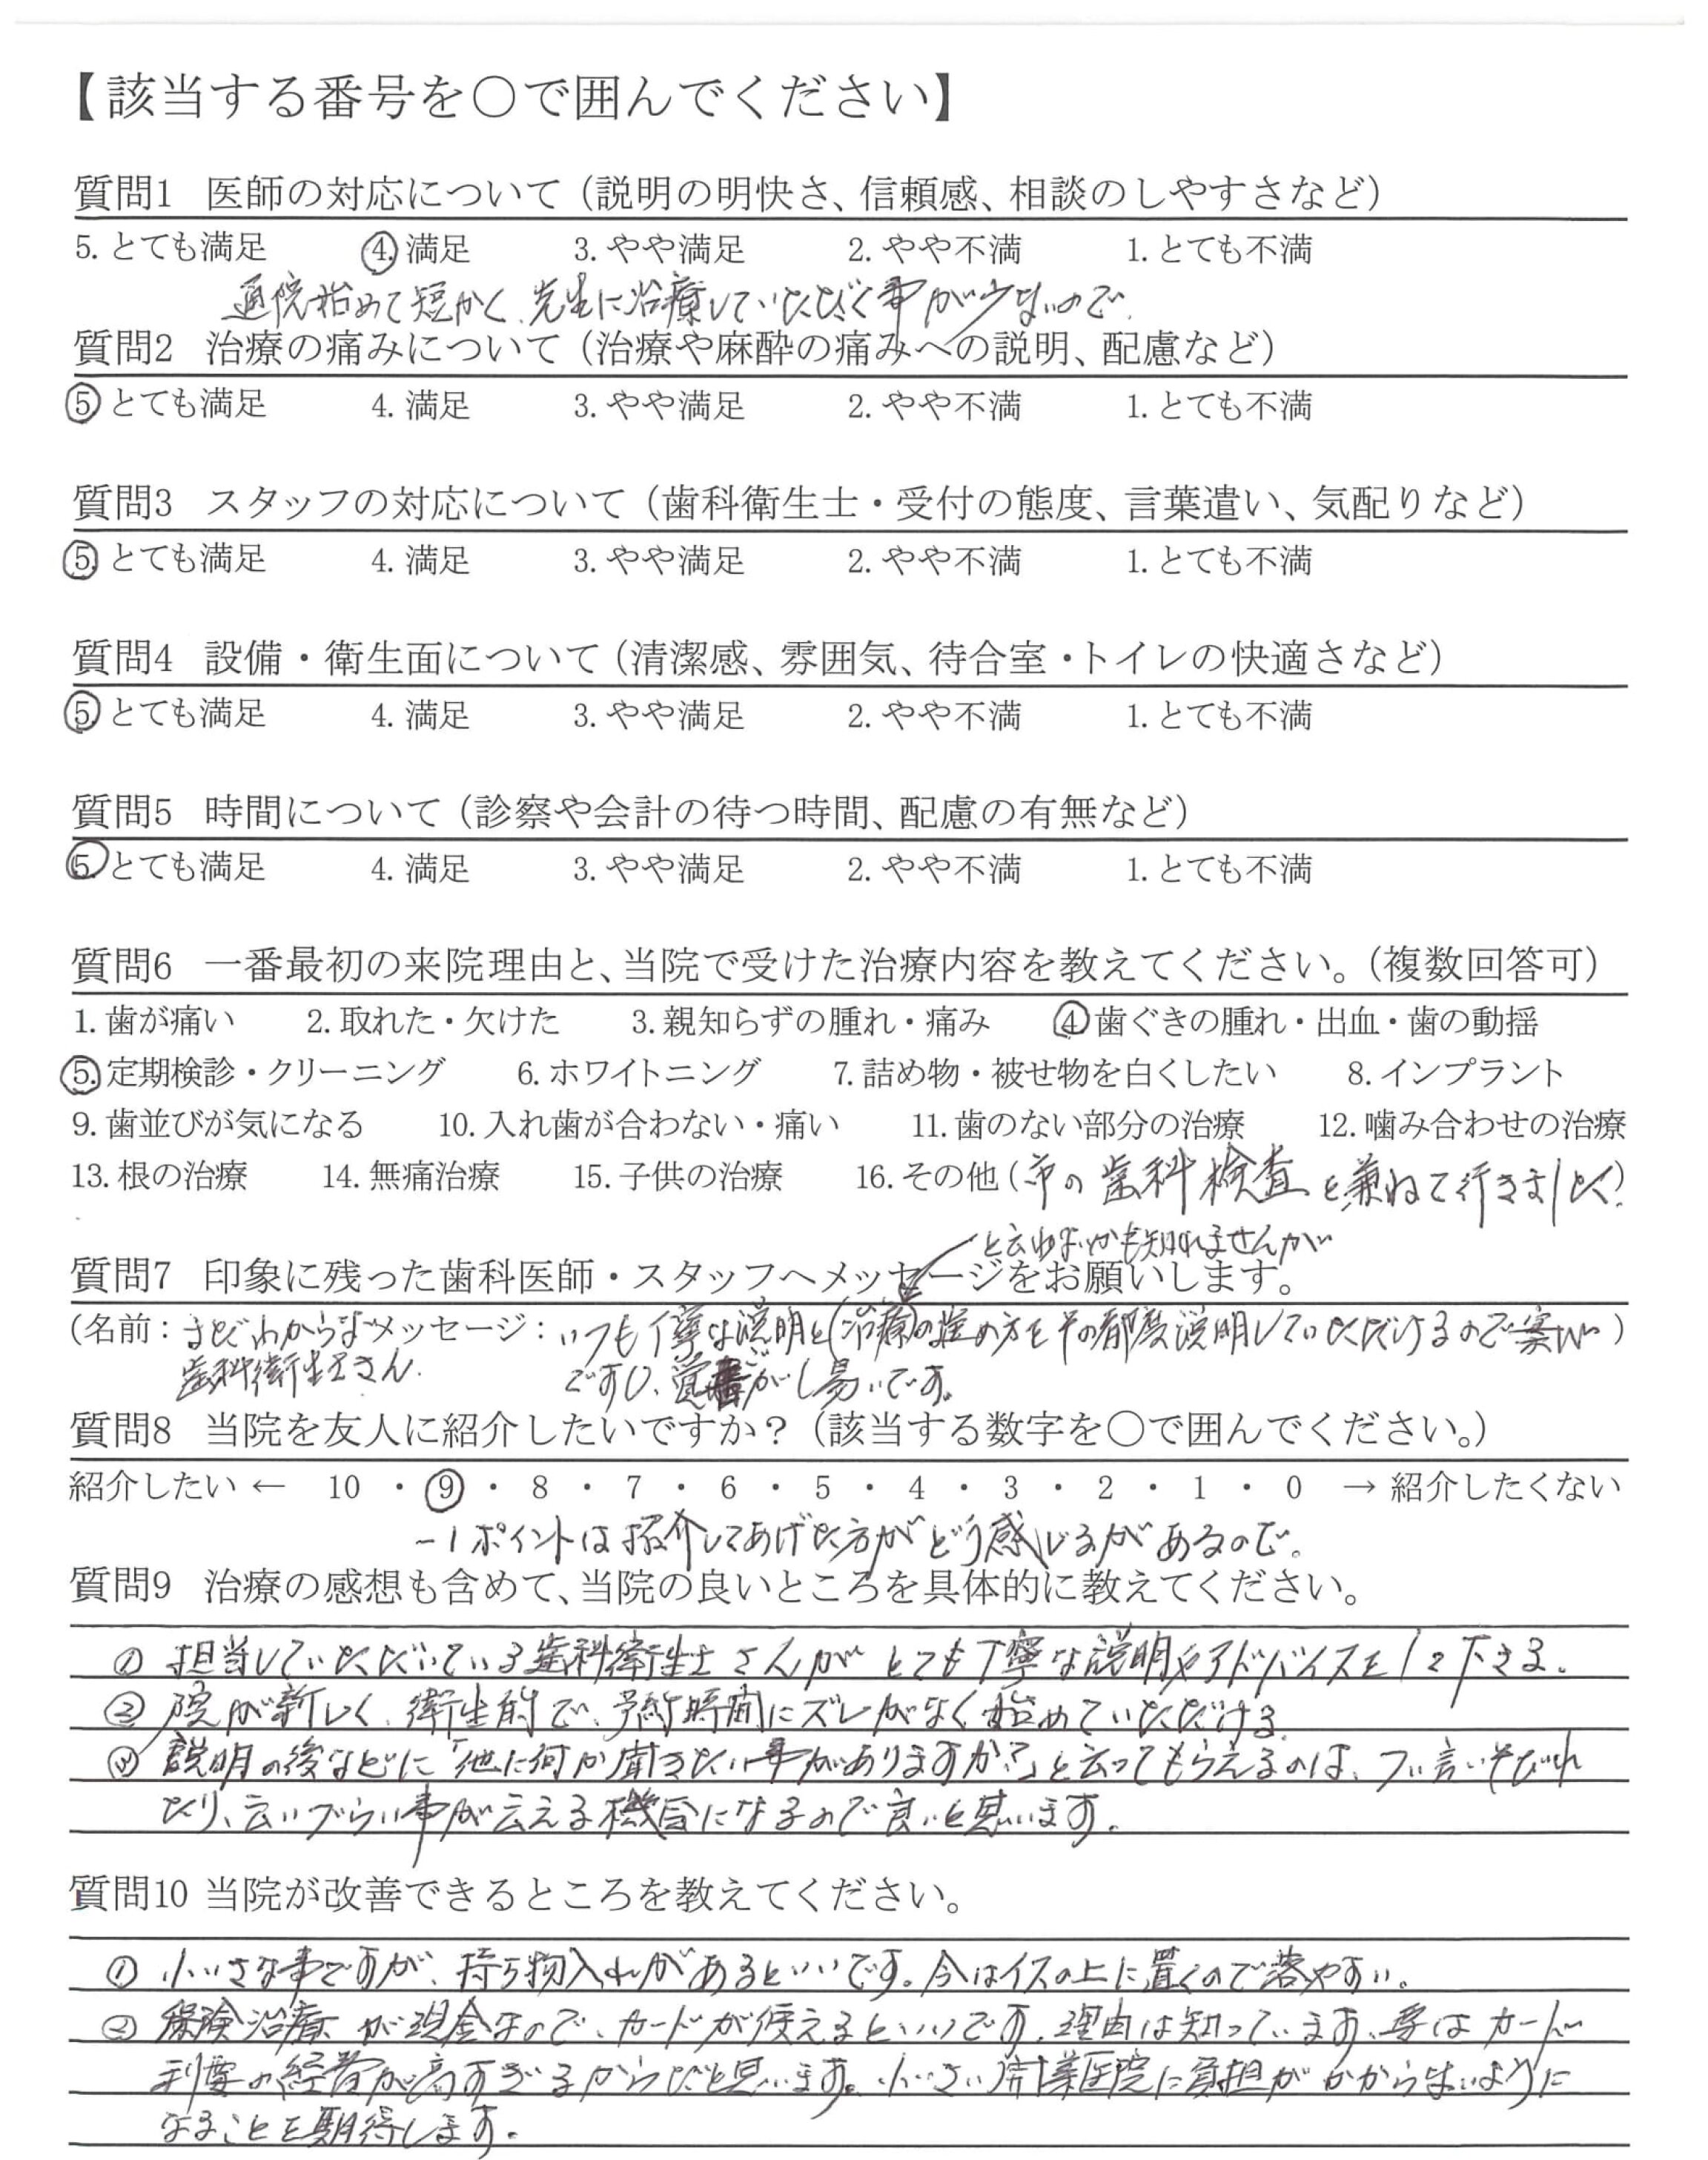 【該当する番号を○で囲んでください】
質問1 医師の対応について（説明の明快さ、信頼感、相談のしやすさなど）
5. とても満足 4. 満足 3. やや満足 2. やや不満 1. とても不満
通院始めて短かく、先生に治療していただく事が少ないので.
質問2 治療の痛みについて（治療や麻酔の痛みへの説明、配慮など）
5 とても満足 4. 満足 3. やや満足 2. やや不満 1. とても不満
質問3 スタッフの対応について（歯科衛生士・受付の態度、言葉遣い、気配りなど）
5. とても満足 4. 満足 3. やや満足 2. やや不満 1. とても不満
質問4 設備・衛生面について（清潔感、雰囲気、待合室・トイレの快適さなど）
5. とても満足 4. 満足 3. やや満足 2. やや不満 1. とても不満
質問5 時間について（診察や会計の待つ時間、配慮の有無など）
5. とても満足 4. 満足 3. やや満足 2. やや不満 1. とても不満
質問6 一番最初の来院理由と、当院で受けた治療内容を教えてください。（複数回答可）
1. 歯が痛い 2. 取れた・欠けた 3. 親知らずの腫れ・痛み 4 歯ぐきの腫れ・出血・歯の動揺
5. 定期検診・クリーニング 6. ホワイトニング 7. 詰め物・被せ物を白くしたい 8. インプラント
9. 歯並びが気になる 10. 入れ歯が合わない・痛い 11. 歯のない部分の治療 12. 噛み合わせの治療
13. 根の治療 14. 無痛治療 15. 子供の治療 16. その他（市の歯科検査を兼ねて行きました）
と云わないかも知れませんが
質問7 印象に残った歯科医師・スタッフへメッセージをお願いします。
（名前：まだわからな メッセージ：いつも丁寧な説明と(治療)の進め方をその都度説明していただけるので楽）
歯科衛生士さん. ですし、覚悟がし易いです。
質問8 当院を友人に紹介したいですか？（該当する数字を○で囲んでください。）
紹介したい ← 10 ・ 9 ・ 8 ・ 7 ・ 6 ・ 5 ・ 4 ・ 3 ・ 2 ・ 1 ・ 0 → 紹介したくない
-1ポイントは紹介してあげた方がどう感じるかがあるので。
質問9 治療の感想も含めて、当院の良いところを具体的に教えてください。
① 担当していただいている歯科衛生士さんがとても丁寧な説明やアドバイスをして下さる.
② 院が新しく、衛生的で、予約時間にズレがなく始めていただける.
③ 説明の後などに「他に何か聞きたい事がありますか?」と云ってもらえるのは、つい言いそびれ
たり、云いづらい事が云える機会になるので良いと思います.
質問10 当院が改善できるところを教えてください。
① 小さな事ですが、持ち物入れがあるといいです。今はイスの上に置くので落やすい。
② 保険治療が現金なので、カードが使えるといいです. 理由は知っています、要はカード
利要の経費が高すぎるからだと思います。小さい開業医院に負担がかからないように
なることを期待します。